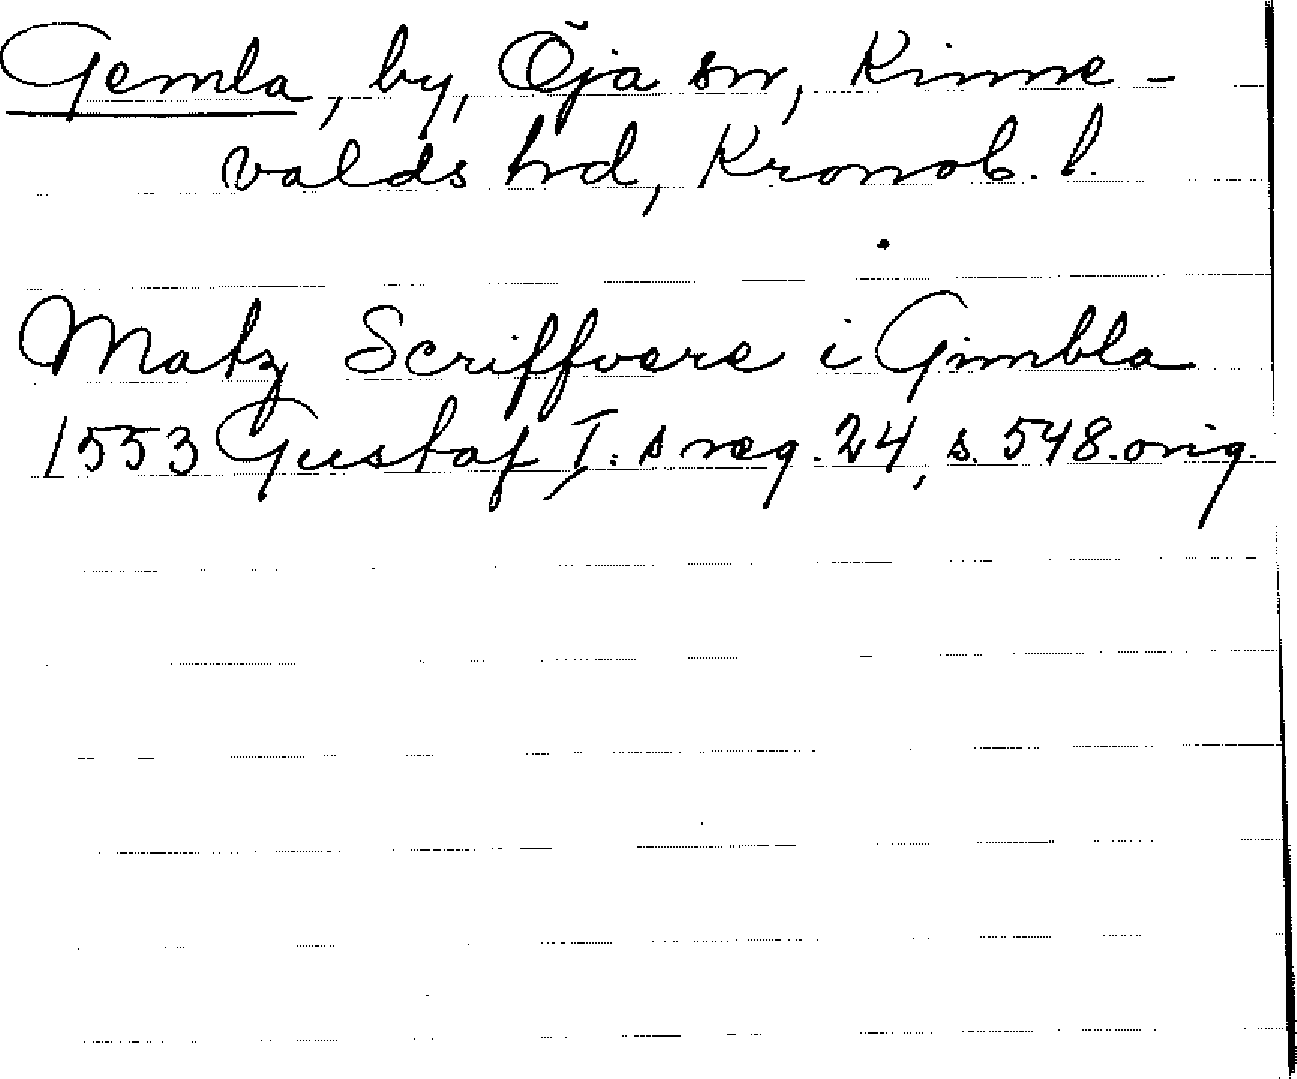 Gemla, by, Öja sn, Kinne-
valds hd, Kronob. l.
Matz Scriffvere i Gimbla
1553 Gustaf I:s reg. 24, s. 548. orig.